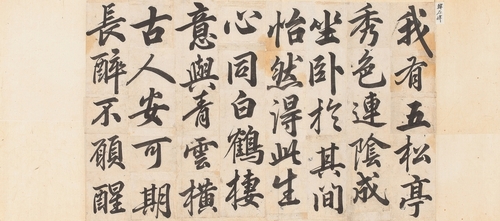 我有五松亭
秀色連陰成
坐卧於其间
怡然得此生
心同白鶴棲
意與青雲橫
古人安可期
長醉不願醒